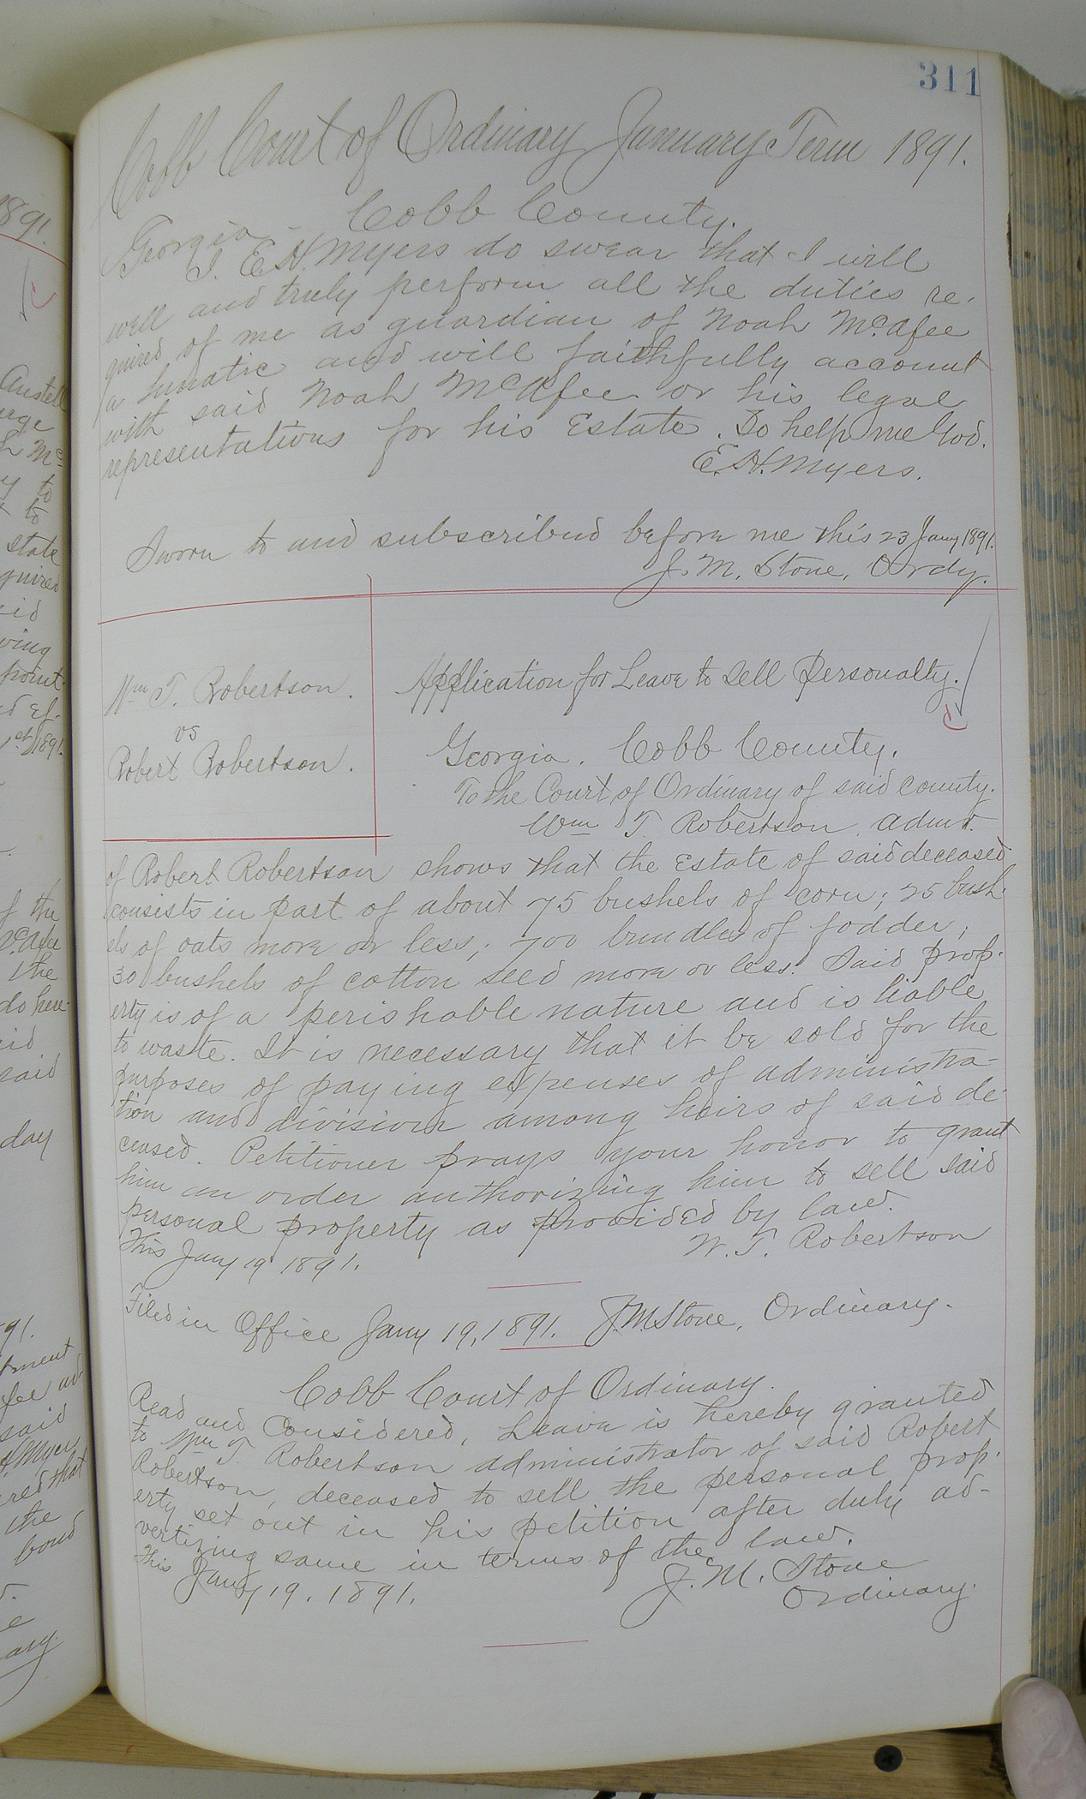 311
Cobb Court of Ordinary January Term 1891.
Georgia - Cobb County.
I. E. H. Myers do swear that I will
well and truly perform all the duties re-
quired of me as guardian of Noah McAfee
a lunatic and will faithfully account
with said Noah McAfee or his legal
representatives for his Estate. So help me God.
E. H. Myers.
Sworn to and subscribed before me this 23 Jany 1891.
J. M. Stone, Ordy.
Wm T. Robertson.
vs
Robert Robertson.
Application for Leave to Sell Personalty.
Georgia. Cobb County.
To the Court of Ordinary of said county.
Wm T. Robertson, admr.
of Robert Robertson shows that the Estate of said deceased
consists in part of about 75 bushels of corn; 25 bush-
els of oats more or less; 700 bundles of fodder,
30 bushels of cotton seed more or less. Said prop-
erty is of a perishable nature and is liable
to waste. It is necessary that it be sold for the
purposes of paying expenses of administra-
tion and division among heirs of said de-
ceased. Petitioner prays your honor to grant
him an order authorizing him to sell said
personal property as provided by law.
This Jany 19 1891.
W. T. Robertson
Filed in Office Jany 19, 1891. J. M. Stone, Ordinary.
Cobb Court of Ordinary.
Read and Considered, Leave is hereby granted
to Wm T. Robertson administrator of said Robert
Robertson, deceased to sell the personal prop-
erty set out in his petition after duly ad-
vertizing same in terms of the law.
This Jany 19. 1891.
J. M. Stone
Ordinary.
1891.
Austell
Mc
to
to
state
quired
point-
1891.
of the
McAfee
the
do here-
said
day
91.
said
Myers
that
the
bond